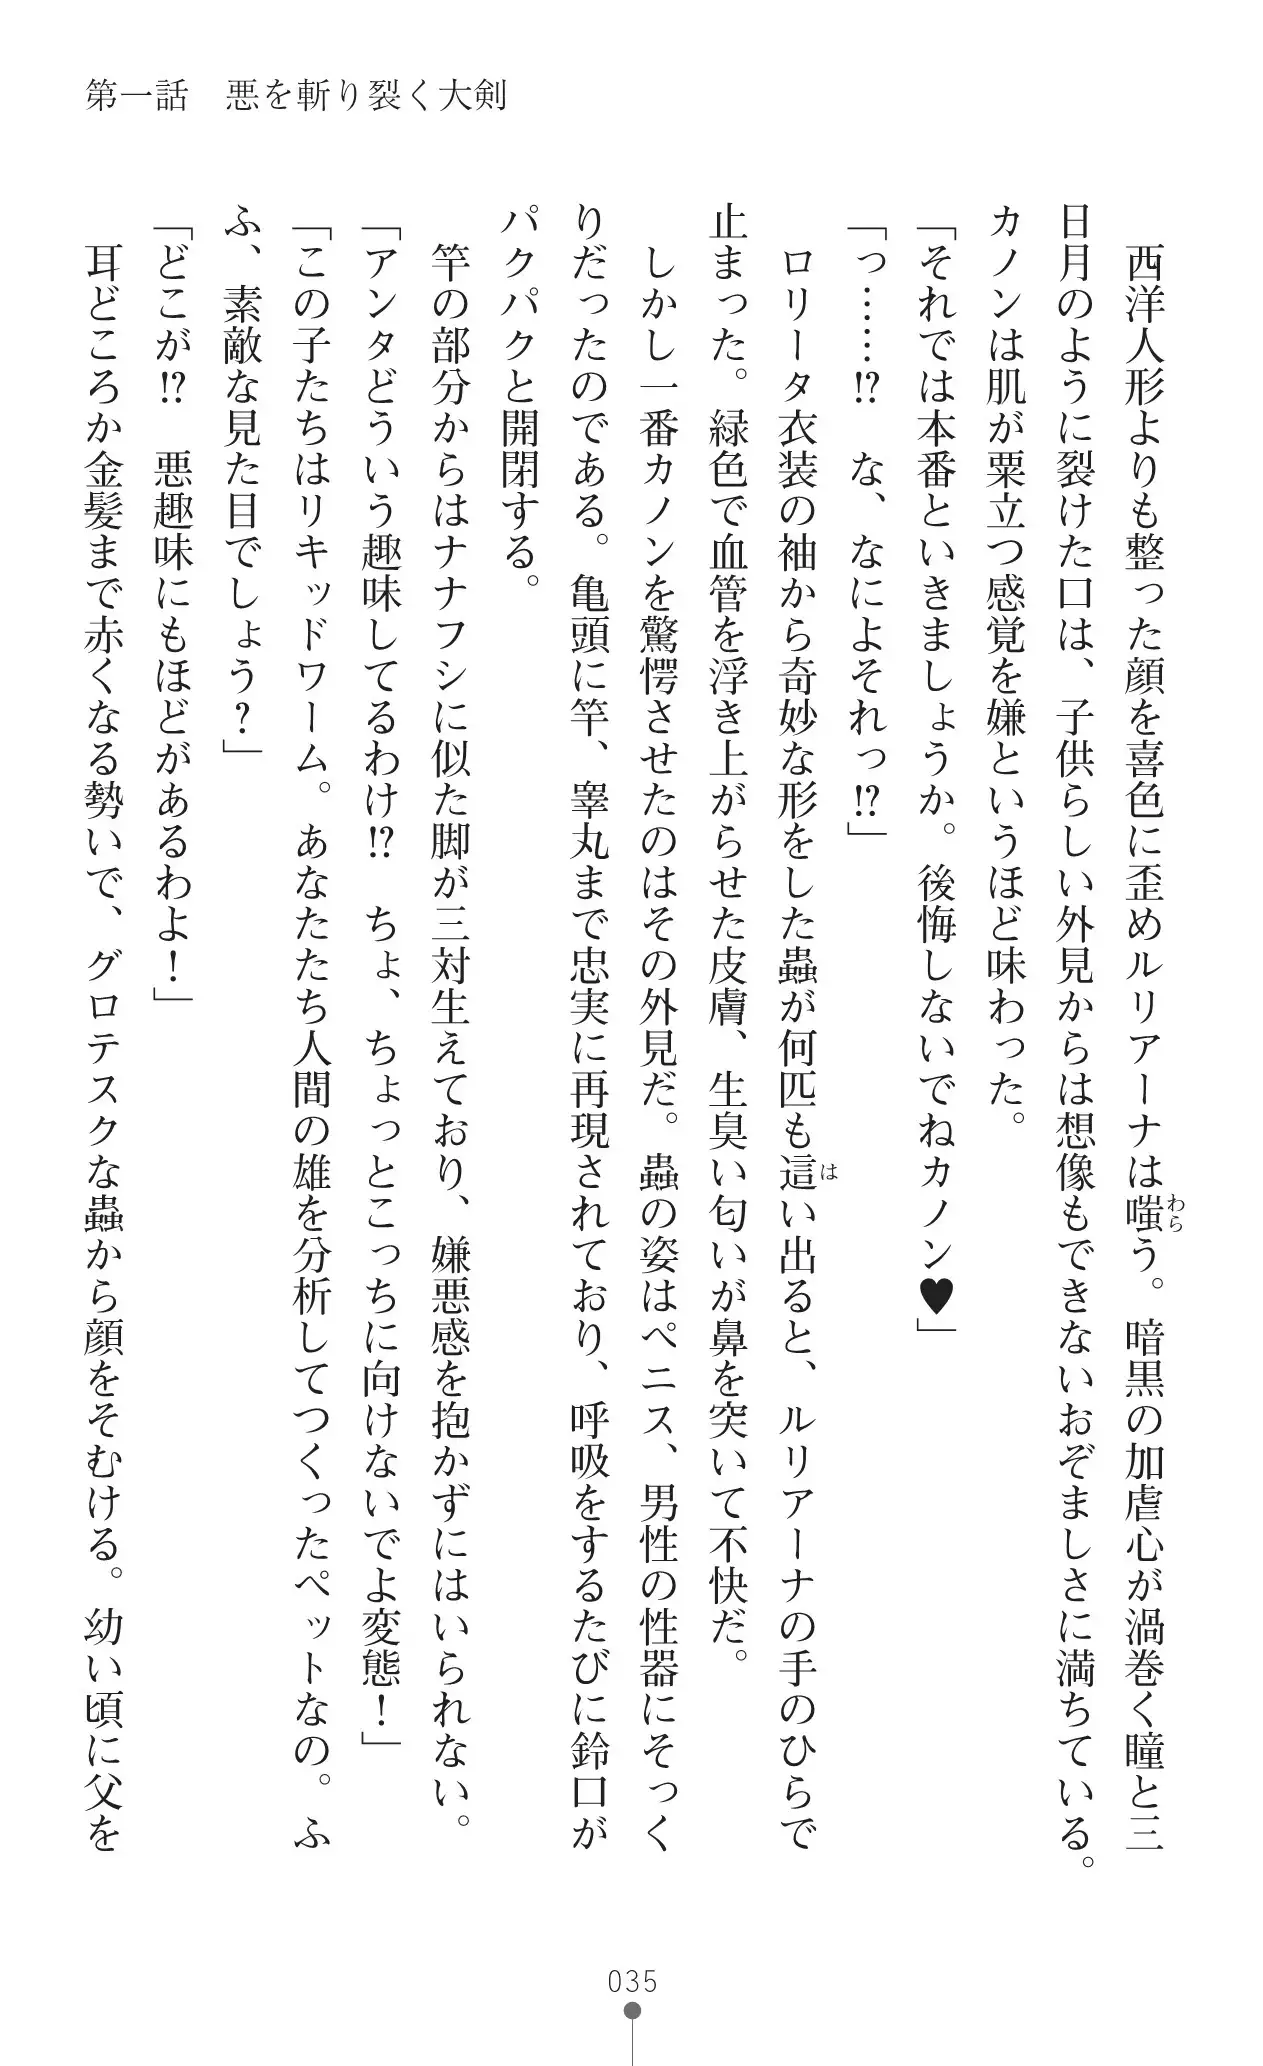 第一話　悪を斬り裂く大剣
西洋人形よりも整った顔を喜色に歪めルリアーナは嗤う。暗黒の加虐心が渦巻く瞳と三
わら
日月のように裂けた口は、子供らしい外見からは想像もできないおぞましさに満ちている。
カノンは肌が粟立つ感覚を嫌というほど味わった。
「それでは本番といきましょうか。後悔しないでねカノン♥」
「っ……⁉　な、なによそれっ⁉」
ロリータ衣装の袖から奇妙な形をした蟲が何匹も這い出ると、ルリアーナの手のひらで
は
止まった。緑色で血管を浮き上がらせた皮膚、生臭い匂いが鼻を突いて不快だ。
しかし一番カノンを驚愕させたのはその外見だ。蟲の姿はペニス、男性の性器にそっく
りだったのである。亀頭に竿、睾丸まで忠実に再現されており、呼吸をするたびに鈴口が
パクパクと開閉する。
竿の部分からはナナフシに似た脚が三対生えており、嫌悪感を抱かずにはいられない。
「アンタどういう趣味してるわけ⁉　ちょ、ちょっとこっちに向けないでよ変態！」
「この子たちはリキッドワーム。あなたたち人間の雄を分析してつくったペットなの。ふ
ふ、素敵な見た目でしょう？」
「どこが⁉　悪趣味にもほどがあるわよ！」
耳どころか金髪まで赤くなる勢いで、グロテスクな蟲から顔をそむける。幼い頃に父を
035